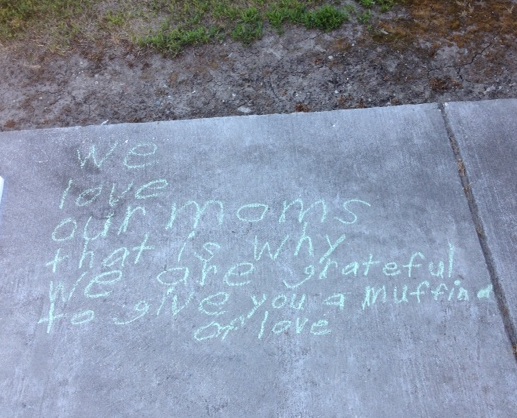 We
love
our mom's
that is why
We are grateful
to give you a muffin
of love